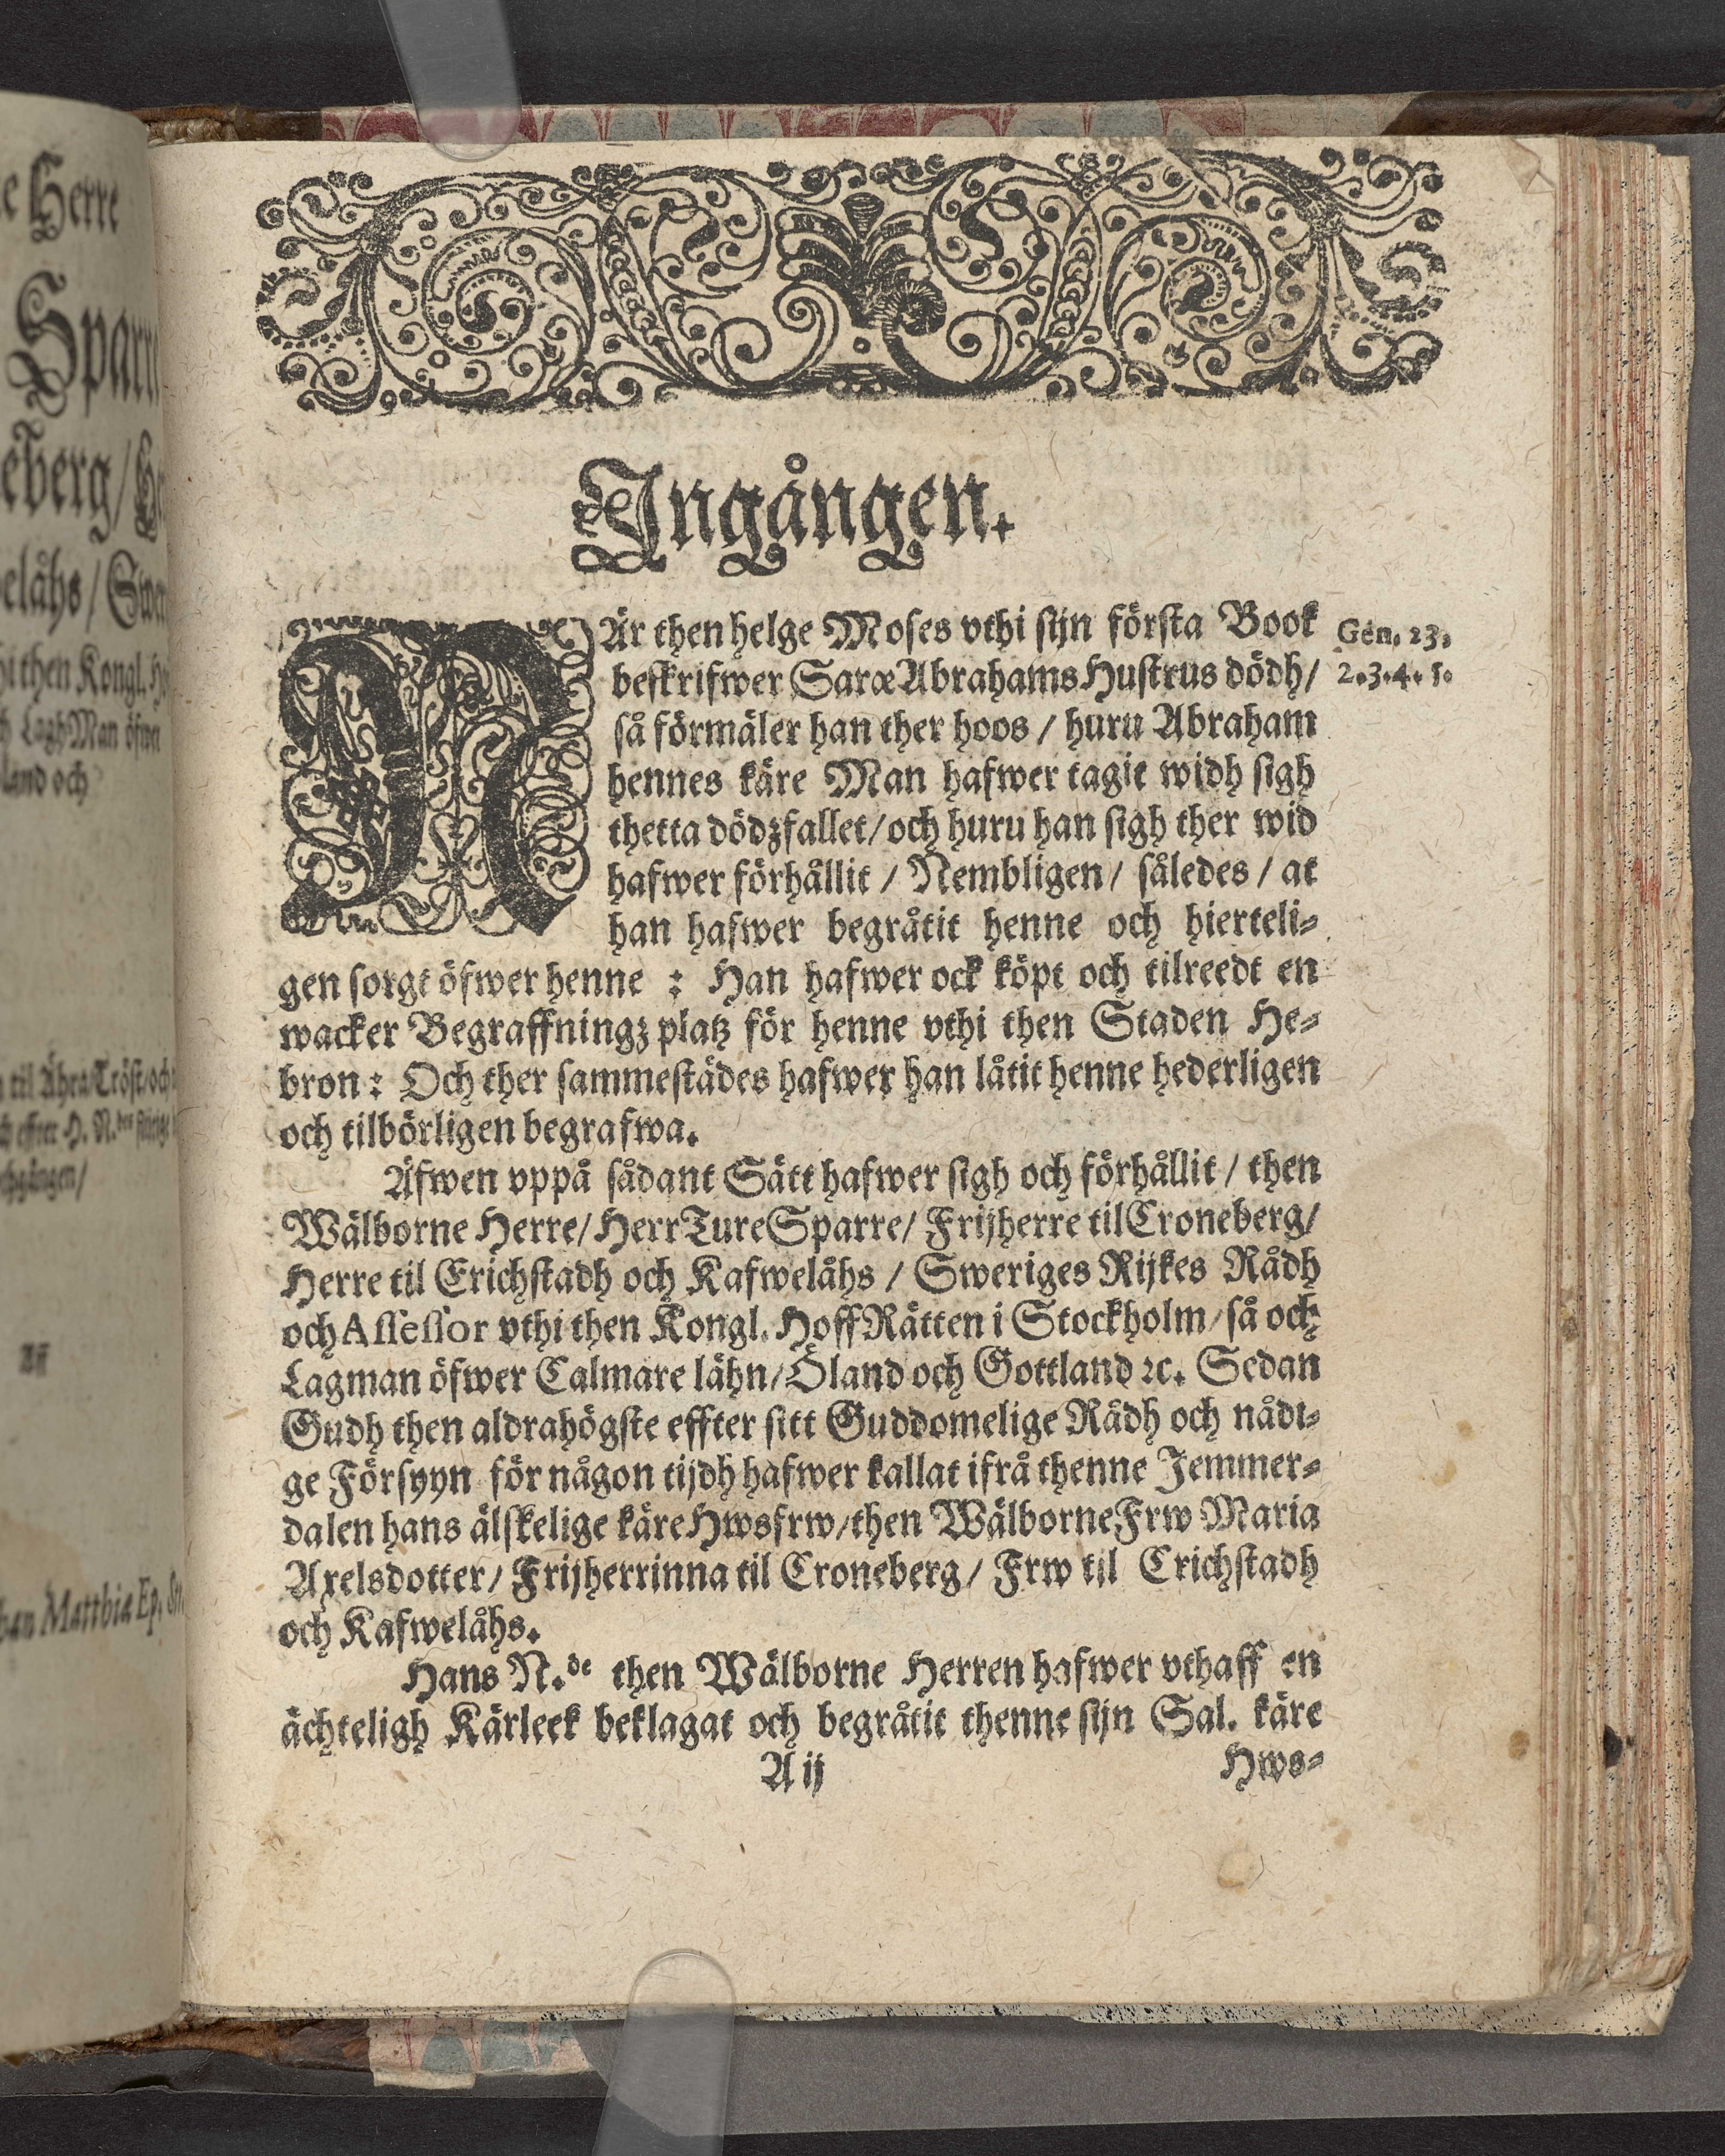 e Herre
Sparr
eberg/ He
elåhs / Swe
hi then Kongl. H
h LaghMan öfwer
land och
til Ähra/Tröst/och
Ingången.
NÄr then helge Moses vthi sijn första Book
Gen. 23.
beskrifwer Saræ Abrahams Hustrus dödh/
2.3.4.5.
så förmäler han ther hoos / huru Abraham
hennes käre Man hafwer tagit widh sigh
thetta dödzfallet/och huru han sigh ther wid
hafwer förhållit / Nembligen / således / at
han hafwer begråtit henne och hierteli-
gen sorgt öfwer henne : Han hafwer ock köpt och tilreedt en
wacker Begraffningz platz för henne vthi then Staden He-
bron : Och ther sammestädes hafwer han låtit henne hederligen
och tilbörligen begrafwa.
Äfwen vppå sådant Sätt hafwer sigh och förhållit / then
Wälborne Herre/ Herr Ture Sparre/ Frijherre til Croneberg/
Herre til Erichstadh och Kafwelåhs / Sweriges Rijkes Rådh
och Assessor vthi then Kongl. HoffRätten i Stockholm/så och
Lagman öfwer Calmare lähn/Öland och Gottland ꝛc. Sedan
Gudh then aldrahögste effter sitt Guddomelige Rådh och nådi-
ge Försyyn för någon tijdh hafwer kallat ifrå thenne Jemmer-
dalen hans älskelige käre Hwsfrw/then Wälborne Frw Maria
Axelsdotter/ Frijherrinna til Croneberg/ Frw til Erichstadh
och Kafwelåhs.
Hans N.de then Wälborne Herren hafwer vthaff en
ächteligh Kärleek beklagat och begråtit thenne sijn Sal. käre
A ij
Hws-
han Matthiæ Ep. Str